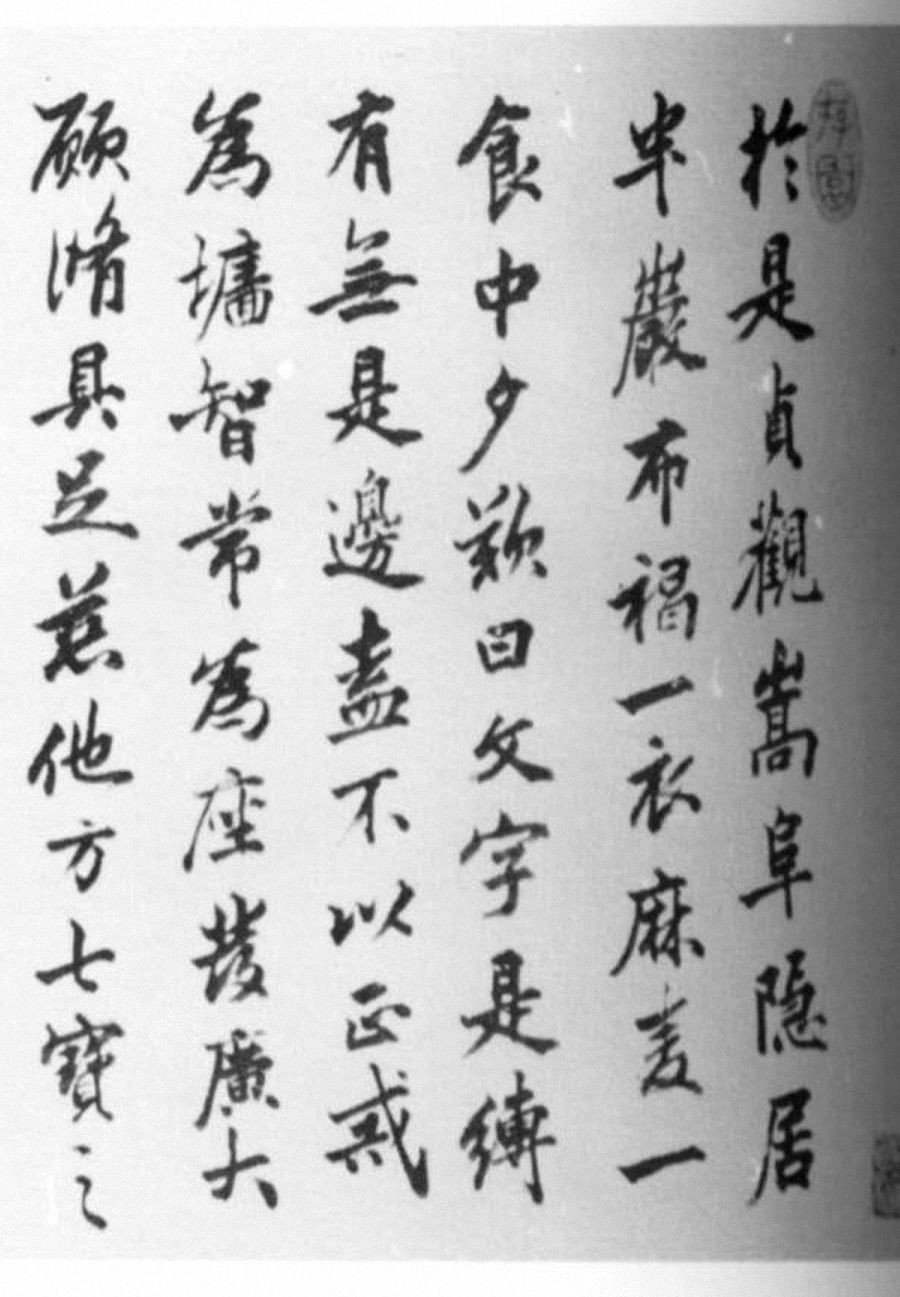 於是貞觀嵩阜隱居
半巖布褐一衣麻麦一
食中夕歎曰文字是縛
有無是邊盍不以正戒
為墉智常為座發廣大
願脩具足慈他方七寶之